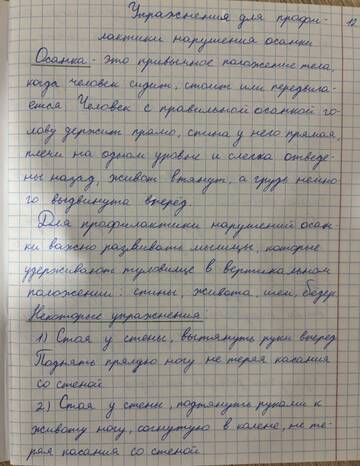 Упражнения для профи- 12
лактики нарушения осанки
Осанка - это привычное положение тела,
когда человек сидит, стоит или передвига-
ется Человек с правильной осанкой го-
лову держит прямо, спина у него прямая,
плечи на одном уровне и слегка отведе-
ны назад, живот втянут, а грудь немно-
го выдвинута вперёд.
Для профилактики нарушений осан-
ки важно развивать мышцы, которые
удерживают туловище в вертикальном
положении: спины, живота, шеи, бёдер
Некоторые упражнения
1) Стоя у стены, вытянуть руки вперед
Поднять прямую ногу не теряя касания
со стеной
2) Стоя у стены, подтянуть руками к
животу ногу, согнутую в колене, не те-
ряя касания со стеной